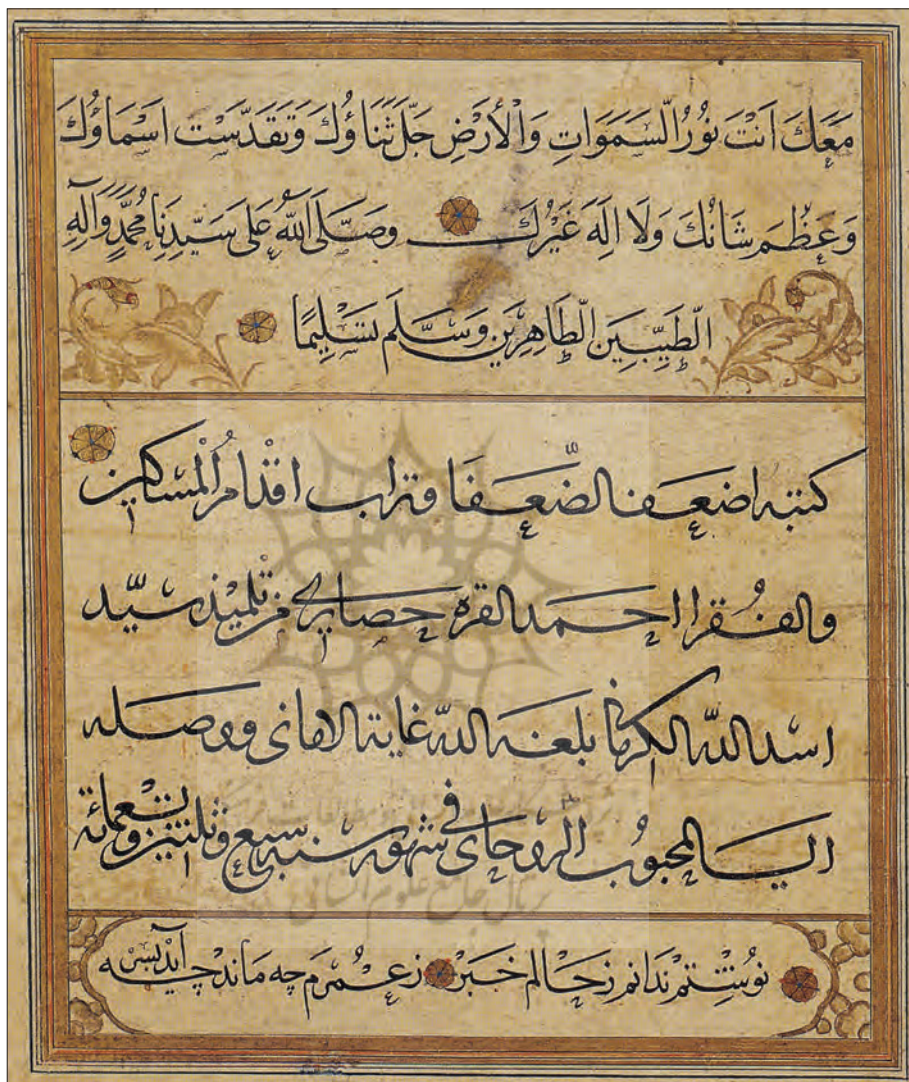 مَعَكَ اَنْتَ نُورُ السَّمَوَاتِ وَالْأَرْضِ جَلَّ ثَنَاؤُكَ وَتَقَدَّسَت اَسْمَاؤُكَ
وَعَظُمَ شَانُكَ وَلَا اِلَهَ غَيْرُكَ وَصَلَّى اللهُ عَلَى سَيِّدِنَا مُحَمَّدٍ وَآلِهِ
الطَّيِّبِينَ الطَّاهِرِينَ وَسَلَّم تَسْلِيمًا
كتبه اضعف الضّعفا وتراب اقدام المساكين
والفقرا احمد القره حصارى من تلميذ سيّد
اسد الله الكرمانى بلغه الله غاية الامانى ووصله
الى المحبوب الروحانى فى شهور سنه سبع وثلثين وتسعمائة
نوُشْتم ندانم زحالم خبَر زعُمرم چه ماند چه آيد بسر